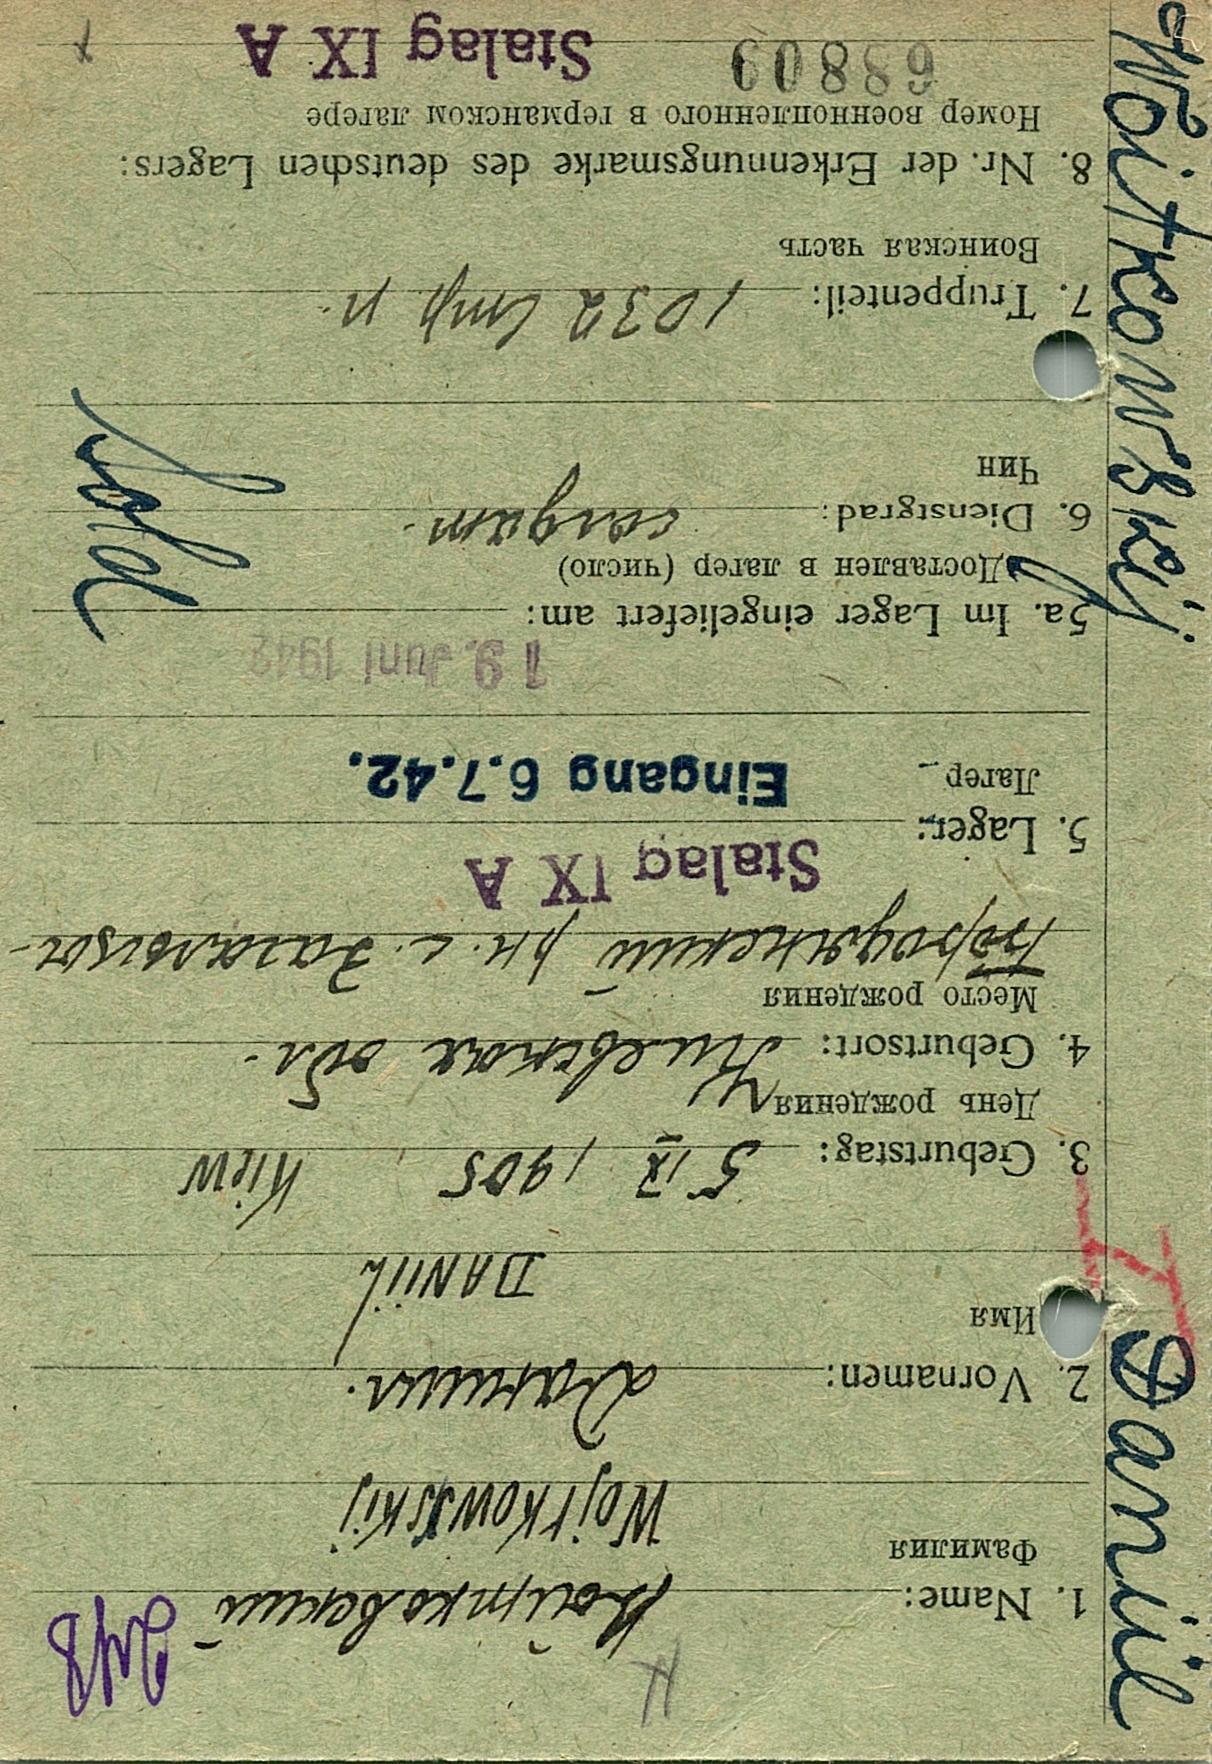 Woitkowskij
Daniil
248
1. Name: Войтковский
Фамилия
Wojtkowskij
2. Vornamen: Даниил.
Имя
DANIIL
3. Geburtstag: 5 IX 1905 Kiew
День рождения
4. Geburtsort: Киевская обл.
Место рождения
Бородянский рн. с.
Stalag IX A
5. Lager:
Лагер
Eingang 6.7.42.
19. Juni 1942
5a. Im Lager eingeliefert am:
Доставлен в лагер (число)
6. Dienstgrad: солдат.
Чин
Sold
7. Truppenteil: 1032 стр. п.
Воинская часть
8. Nr. der Erkennungsmarke des deutschen Lagers:
Номер военнопленного в германском лагере
68809 Stalag IX A